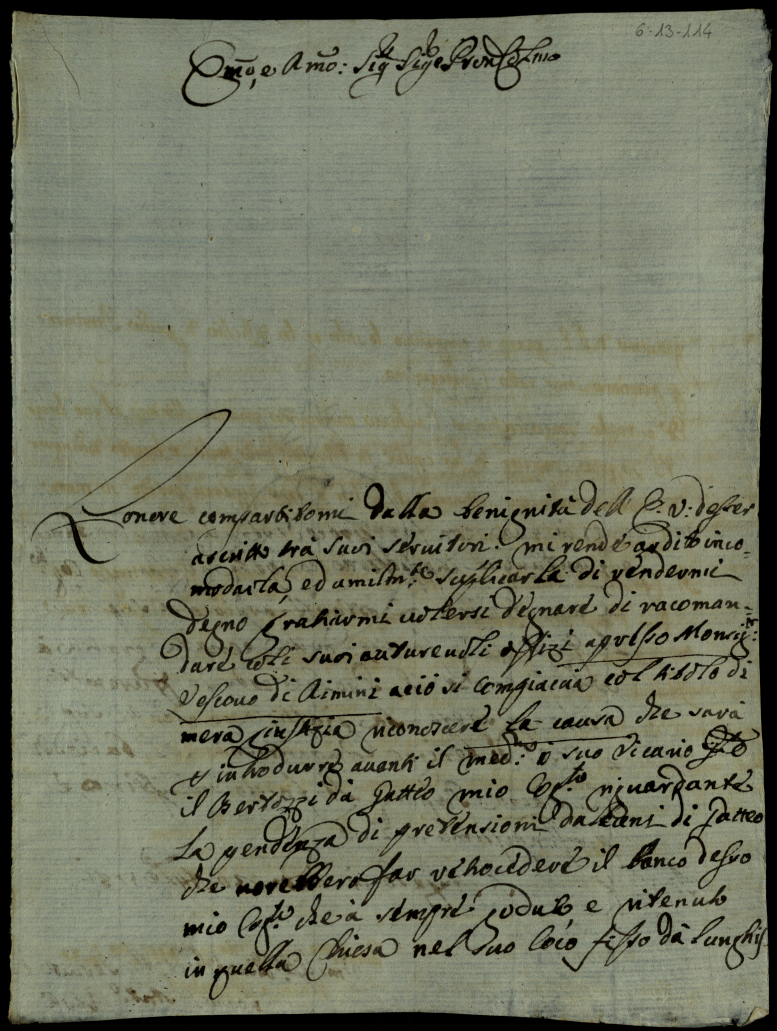 6-13-114
Emo, e Amo: Sig.r Sig.e Pron Col.mo
L'onore compartitomi dalla benignità dell' E: V: d'esser
ascritto trà suoi servitori, mi rende ardito inco-
modarla, ed umilm.te suplicarla di rendermi
degno graziarmi volersi degnare di racoman-
dare colli suoi auturevoli offizi apresso Monsig.r
Vescovo di Rimini aciò si compiacia col titolo di
mera giustizia riconoscere la causa che sarà
introdurre avanti il med.o ò suo Vicario
il Bertozzi da Gatteo mio riguardante
la pendenza di pretensioni di Gatteo
che vorebbero far retrocedere il banco desso
mio che à sempre goduto, e ritenuto
in quella Chiesa nel suo loco fisso dà lunghis